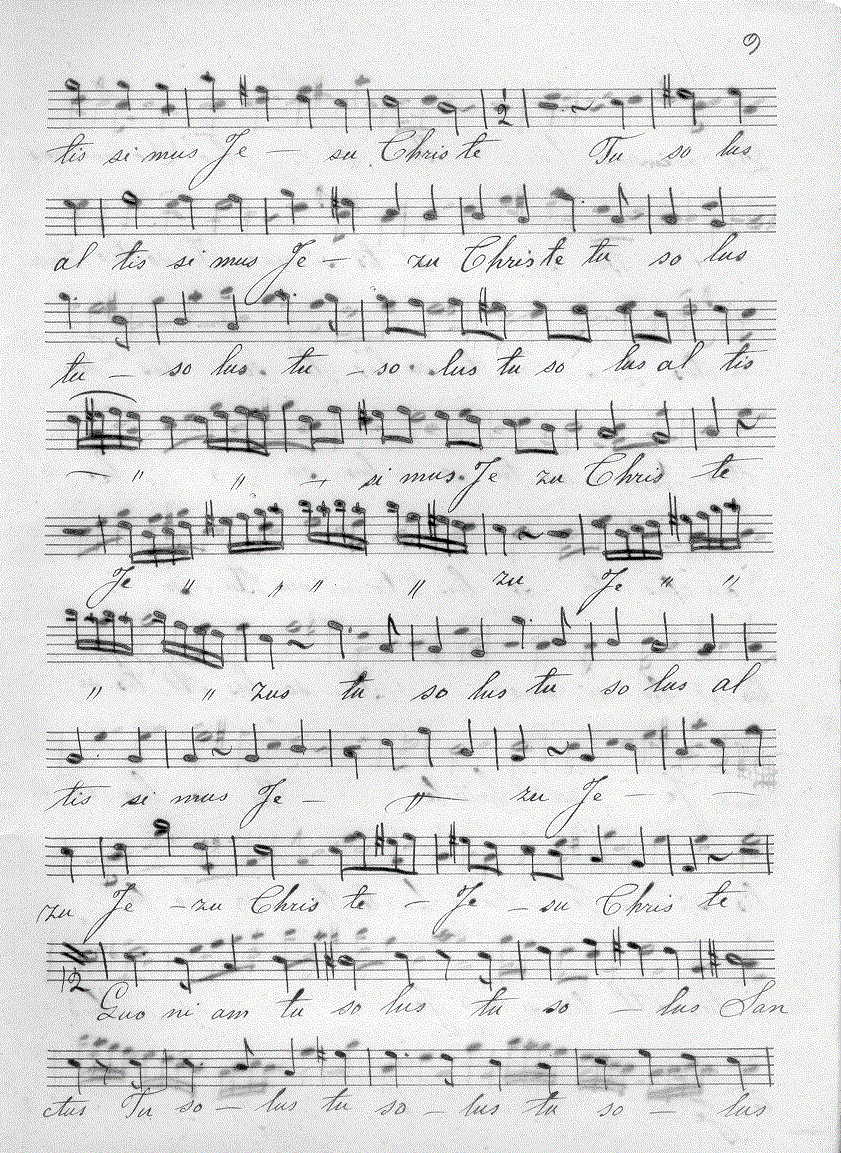 9
2
tis si mus Je – su Chris te Tu so lus
al tis si mus Je – zu Chris te tu so lus
tu – so lus. tu – so. lus tu so lus al tis
– " " – si mus. Je zu Chris te
Je " " " " zu Je " "
" " zus tu so lus tu so lus al
tis si mus Je – " – zu Je – –
zu Je – zu Chris te – Je – su Chris te
12
Quo ni am tu so lus tu so – lus San
ctus Tu so – lus tu so – lus tu so – lus